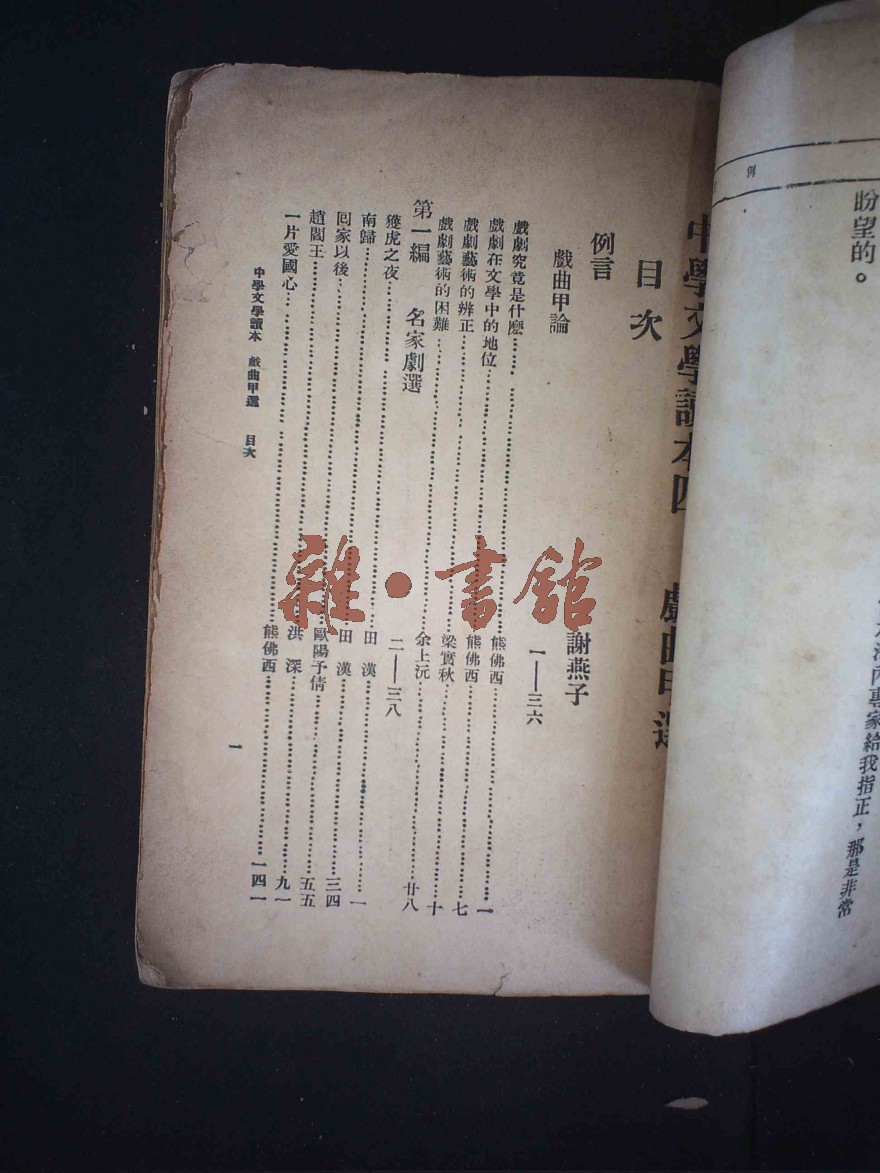 例
盼望的。
家給我指正，那是非常
中學文學讀本四 戲曲甲選
目次
例言 謝燕子
戲曲甲論 一——三六
戲劇究竟是什麽 熊佛西 一
戲劇在文學中的地位 熊佛西 七
戲劇藝術的辨正 梁實秋 十
戲劇藝術的困難 余上沅 廿八
第一編 名家劇選 二——三八
獲虎之夜 田漢 一
南歸 田漢 三四
回家以後 歐陽予倩 五五
趙閻王 洪深 九一
一片愛國心 熊佛西 一四一
中學文學讀本 戲曲甲選 目次
一
雜·書館